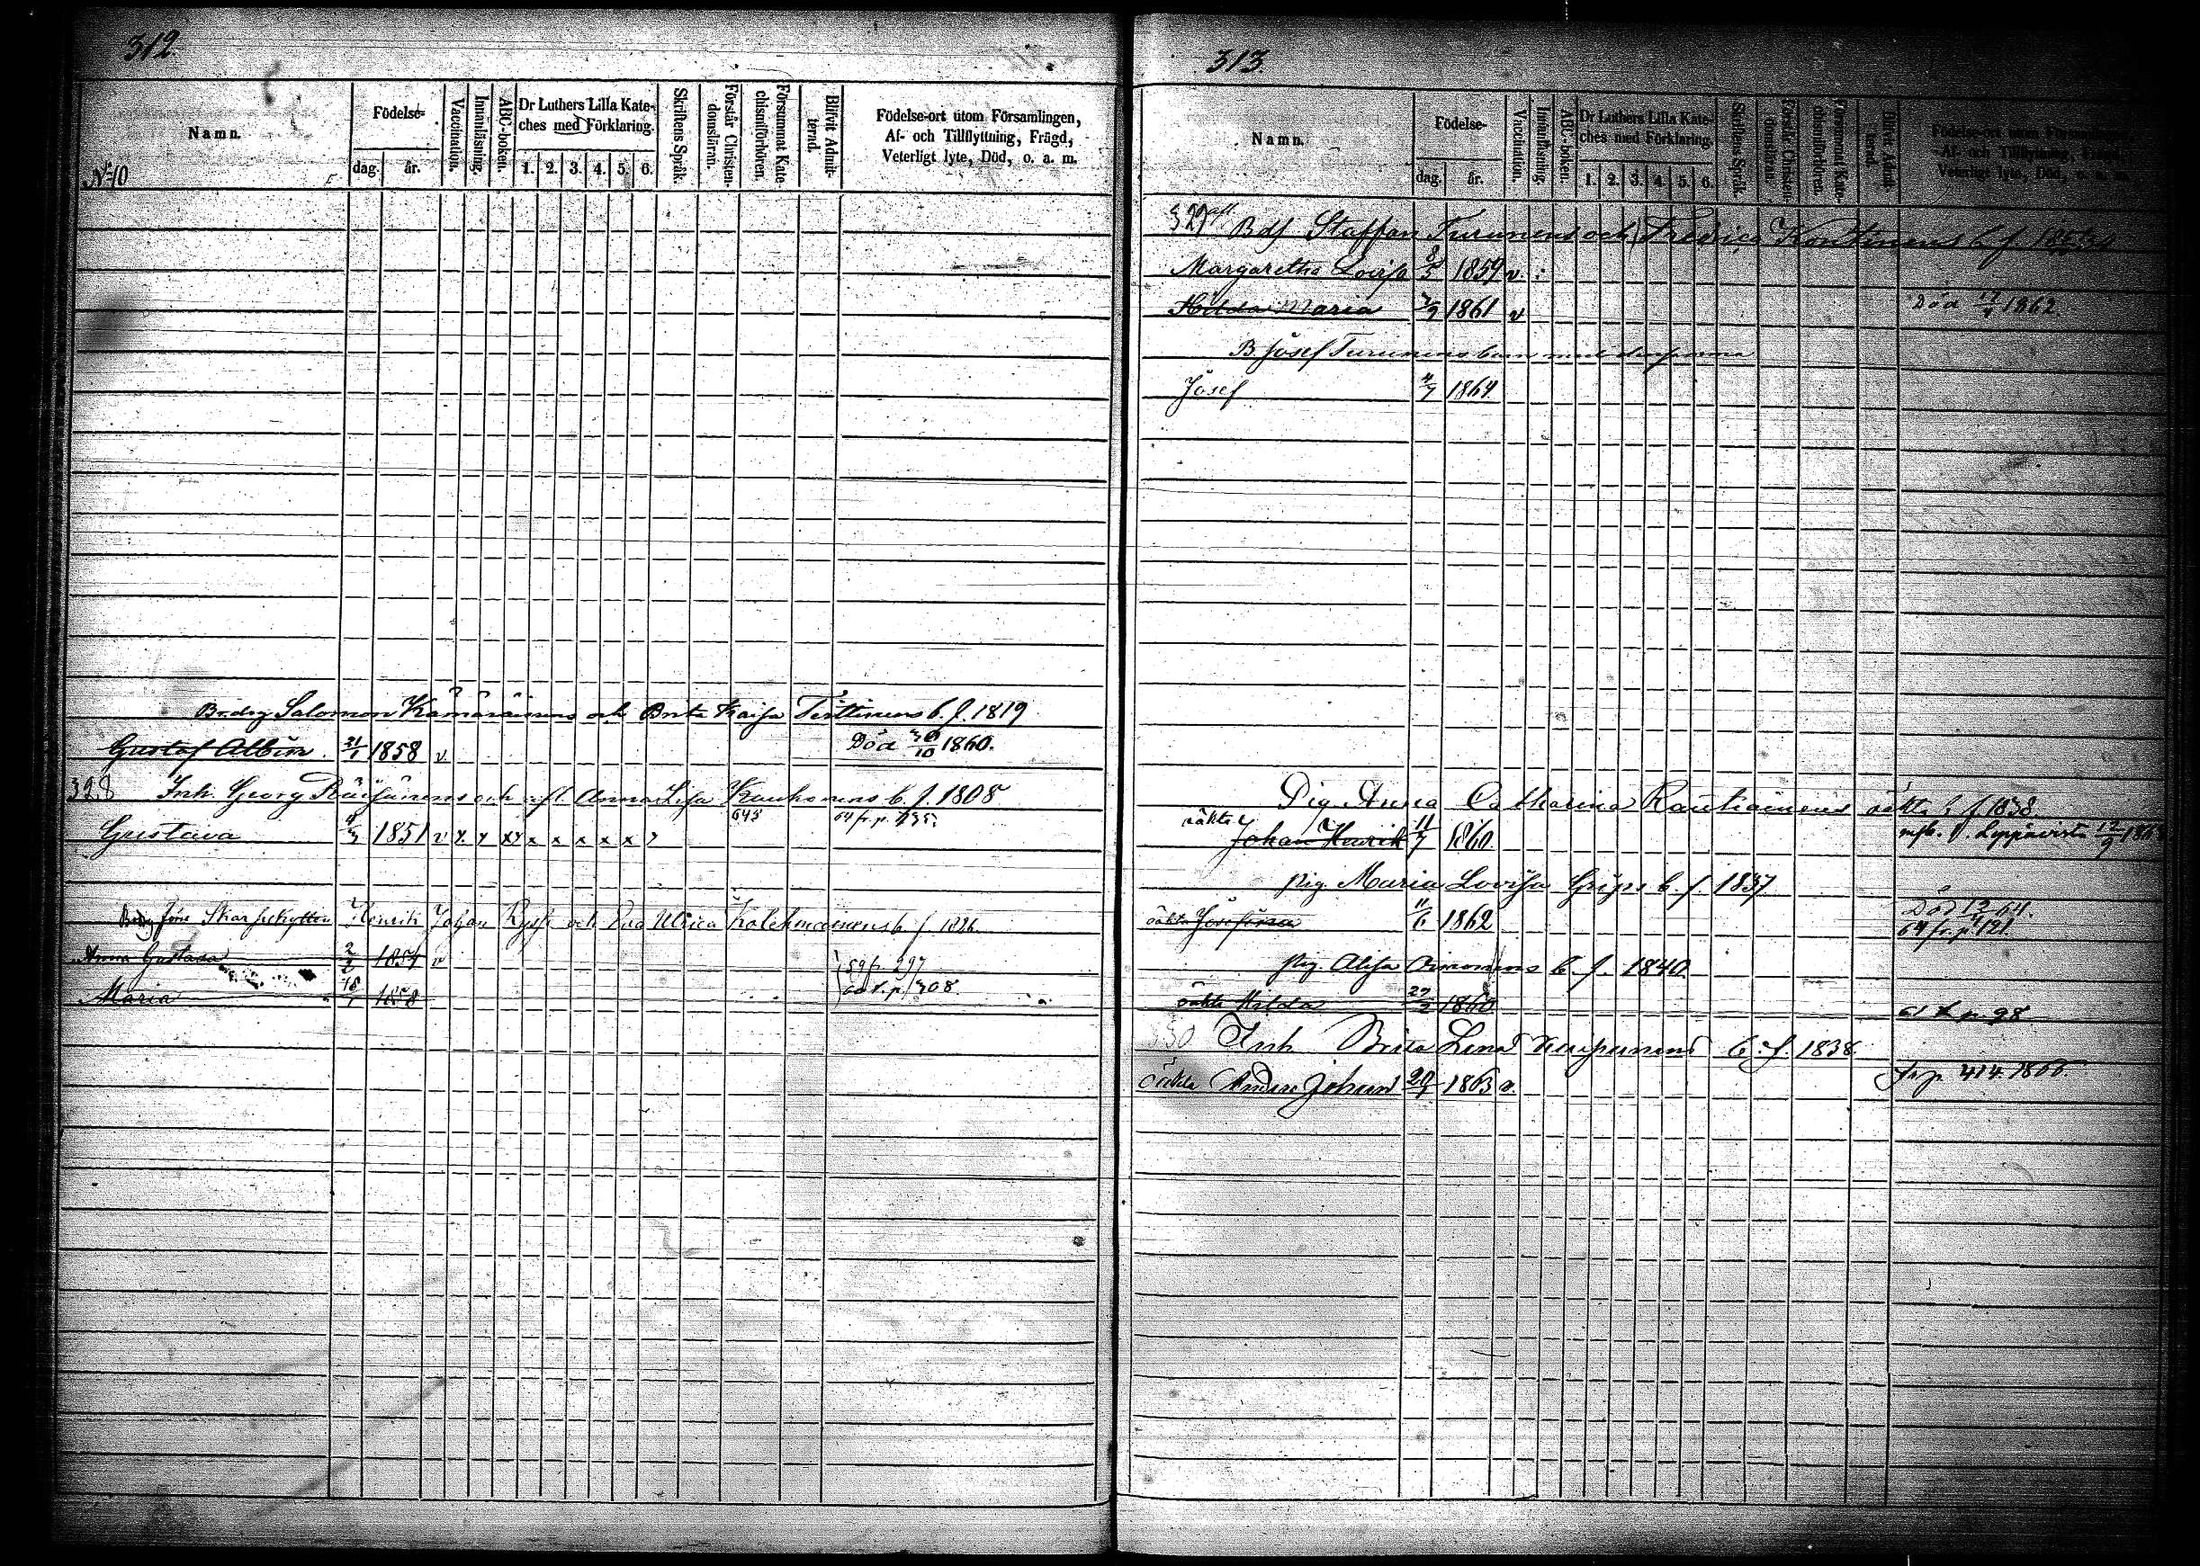 312.
Namn.
Födelse-
Vaccination.
Innanläsning.
ABC-boken.
Dr Luthers Lilla Kate-
ches med Förklaring.
Skriftens Språk.
Förstår Christen-
domsläran.
Försummat Kate-
chismiförhören.
Blifvit Admit-
terad.
Födelse-ort utom Församlingen,
Af- och Tillflyttning, Frägd,
Veterligt lyte, Död, o. a. m.
N:10
dag. år. 1. 2. 3. 4. 5. 6.
Salomon Kämäräinens och Brita Kaisa Tirttinens b. f. 1819
Gustaf Albin. 21/1 1858 v Död 30/10 1860.
328 Inh. Georg Räisänens och afl. Anna Lisa Kauhanens b. f. 1808
643 64 fr. p. 435.
Gustava 1851 v x x x x x x x x
Henrik Johan och Eva Ulrica Kolehmainens b. f. 1826
Anna Gustava 2/2 1854 v 59 fr. 297
Maria 18/1 1858 308
313.
Namn.
Födelse-
Vaccination.
Innanläsning.
ABC-boken.
Dr Luthers Lilla Kate-
ches med Förklaring.
Skriftens Språk.
Förstår Christen-
domsläran.
Försummat Kate-
chismiförhören.
Blifvit Admit-
terad.
Födelse-ort utom Församlingen,
Af- och Tillflyttning, Frägd,
Veterligt lyte, Död, o. a. m.
dag. år. 1. 2. 3. 4. 5. 6.
329 Staffan Turunens och Fredrica Kontinens b. f.
Margaretha Lovisa 8/5 1859 v.
Hilda Maria 1861 v Död 1862
B Josef Turunens barn med
Josef 1864
Pig. Anna Catharina Rautiainens oäkta b. f. 1838.
oäkta Johan Henrik 11/7 1860. Leppävirta 12/9
Pig. Maria Lovisa Grips b. f. 1837.
oäkta Josefina 11/6 1862 Död 64.
64 fr. p. 191
Pig. Alisa Oinonens b. f. 1840
oäkta Hilda 27/2 1860
p. 98
330 Inh Brita Lena b. f. 1838
oäkta Anders Johan 20/7 1863 v. fr p 414. 1866